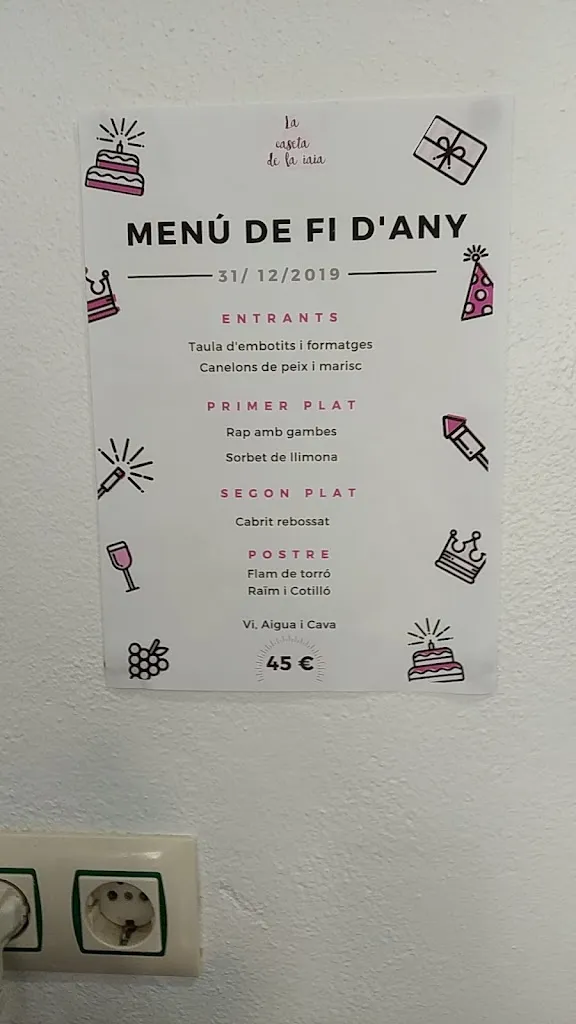 La
caseta
de la iaia
MENÚ DE FI D'ANY
31/ 12/2019
ENTRANTS
Taula d'embotits i formatges
Canelons de peix i marisc
PRIMER PLAT
Rap amb gambes
Sorbet de llimona
SEGON PLAT
Cabrit rebossat
POSTRE
Flam de torró
Raïm i Cotilló
Vi, Aigua i Cava
45 €